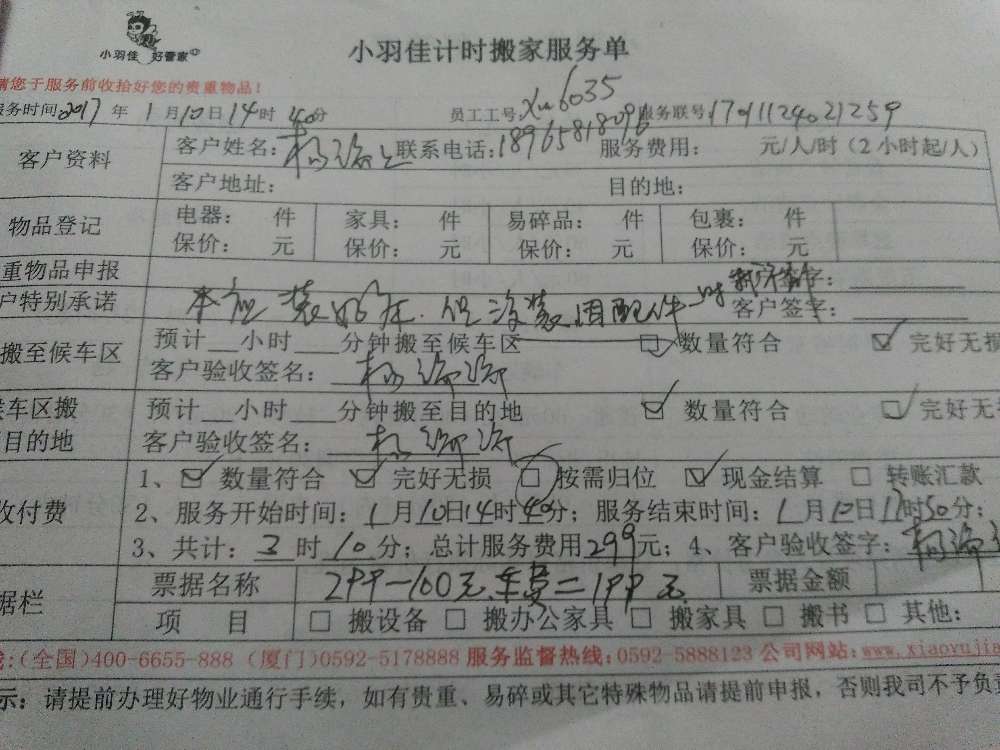 小羽佳 好管家
小羽佳计时搬家服务单
请您于服务前收拾好您的贵重物品！
服务时间：2017年1月10日14时40分 员工工号：xu6035 服务联号：1701112402 1259
客户资料 客户姓名：杨 联系电话：18965818096 服务费用： 元/人/时（2小时起/人）
客户地址： 目的地：
物品登记 电器： 件 家具： 件 易碎品： 件 包裹： 件
保价： 元 保价： 元 保价： 元 保价： 元
重物品申报 签字：
户特别承诺 客户签字：
搬至候车区 预计 小时 分钟搬至候车区 □ 数量符合 ☑ 完好无损
客户验收签名：杨
候车区搬 预计 小时 分钟搬至目的地 ☑ 数量符合 ☑ 完好无
目的地 客户验收签名：杨
收付费 1、☑ 数量符合 ☑ 完好无损 □ 按需归位 ☑ 现金结算 □ 转账汇款
2、服务开始时间：1月10日14时40分；服务结束时间：1月10日17时50分；
3、共计：3时10分；总计服务费用299元；4、客户验收签字：杨
据栏 票据名称 299－100元车费＝199元 票据金额
项 目 □ 搬设备 □ 搬办公家具 □ 搬家具 □ 搬书 □ 其他：
(全国)400-6655-888 (厦门)0592-5178888 服务监督热线:0592-5888123 公司网站:www.xiaoyujia
示：请提前办理好物业通行手续，如有贵重、易碎或其它特殊物品请提前申报，否则我司不予负责